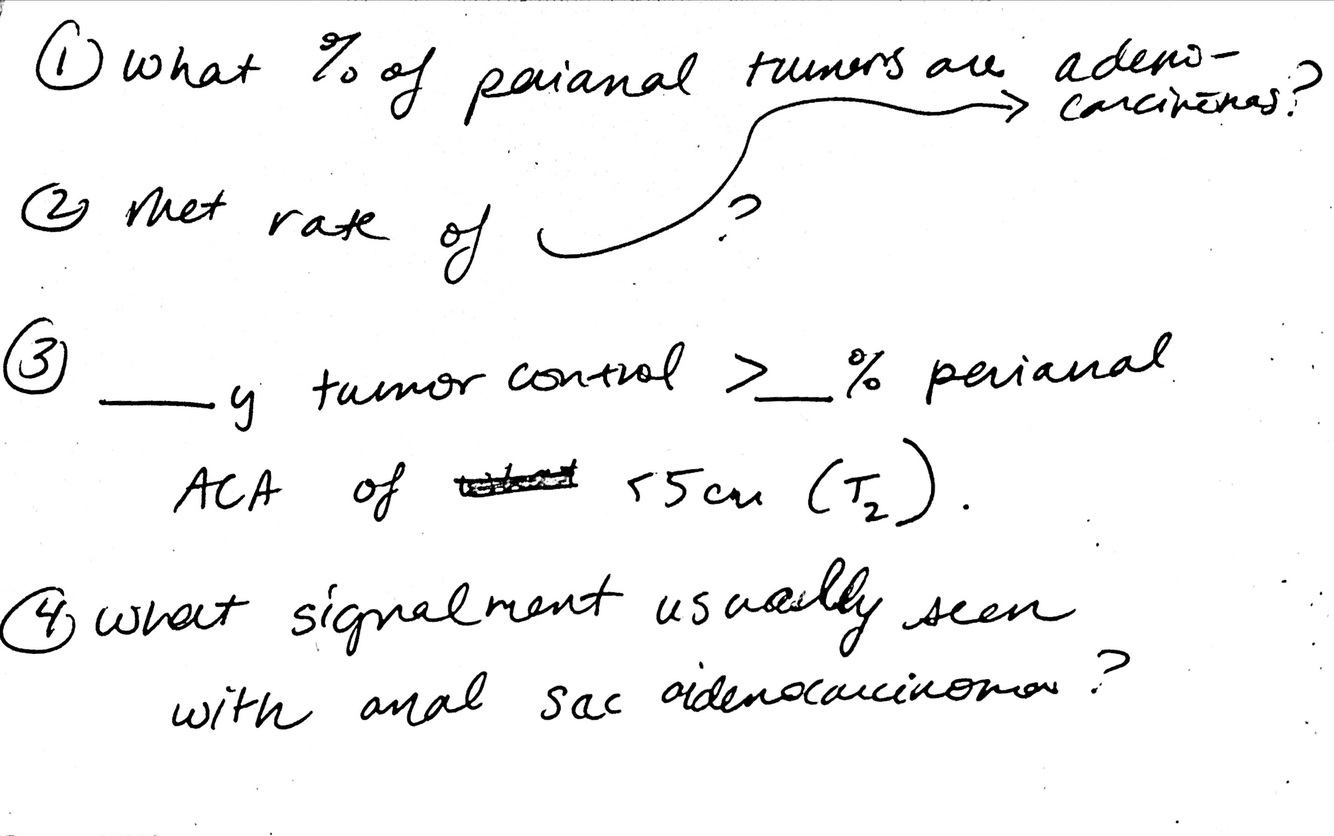 ① What % of perianal tumors are adeno-
carcinomas?
② Met rate of ?
③ ___y tumor control >__% perianal
ACA of <5cm (T2).
④ What signalment usually seen
with anal sac adenocarcinoma?